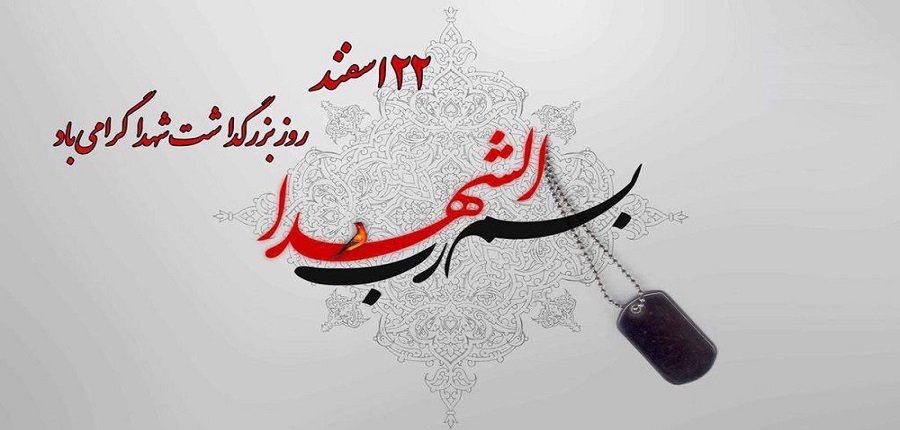 ۲۲ اسفند
روز بزرگداشت شهدا گرامی باد
بسم رب الشهدا